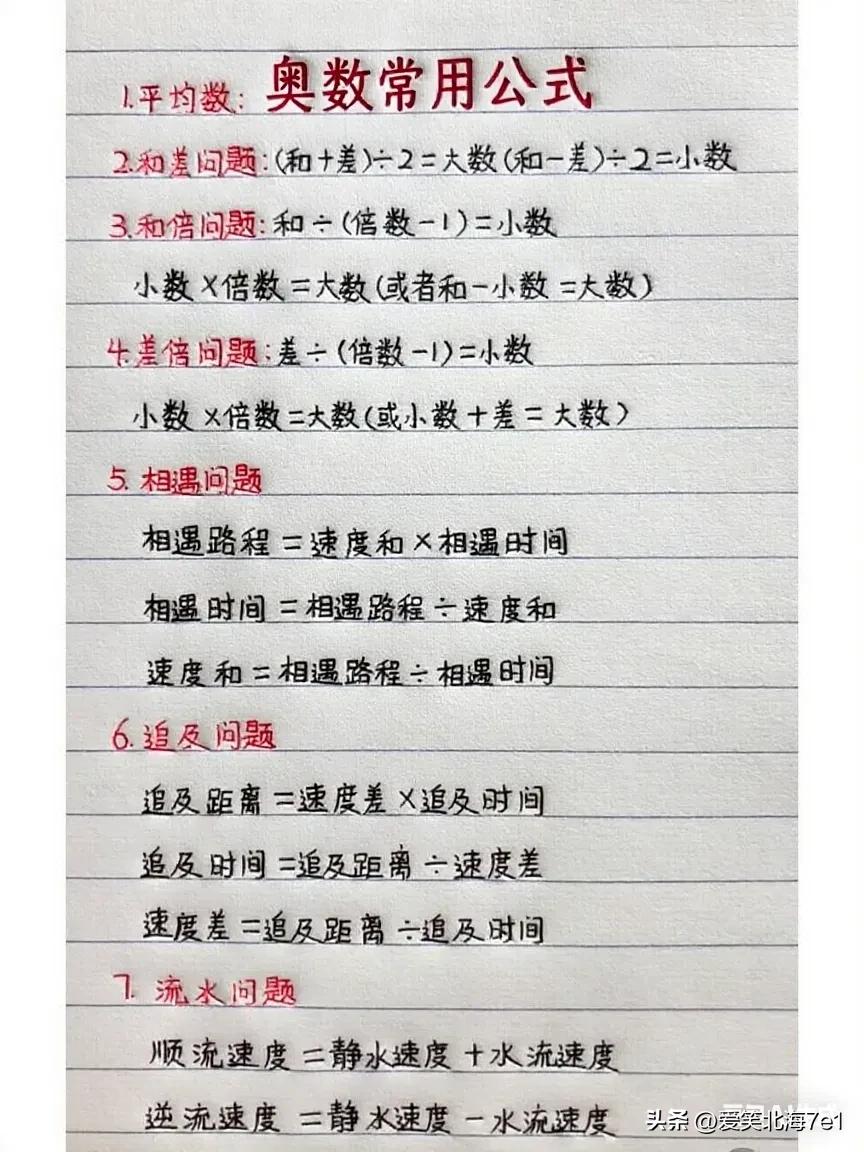 奥数常用公式
1.平均数:
2.和差问题:(和+差)÷2=大数(和-差)÷2=小数
3.和倍问题:和÷(倍数-1)=小数
小数×倍数=大数(或者和-小数=大数)
4.差倍问题:差÷(倍数-1)=小数
小数×倍数=大数(或小数+差=大数)
5.相遇问题
相遇路程=速度和×相遇时间
相遇时间=相遇路程÷速度和
速度和=相遇路程÷相遇时间
6.追及问题
追及距离=速度差×追及时间
追及时间=追及距离÷速度差
速度差=追及距离÷追及时间
7.流水问题
顺流速度=静水速度+水流速度
逆流速度=静水速度-水流速度
头条@爱笑北海7e1